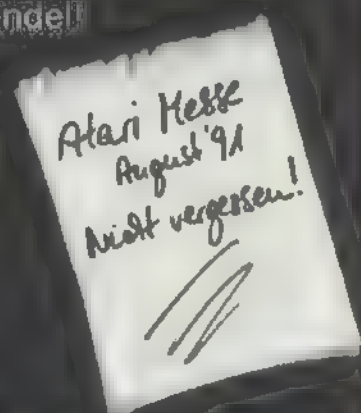 ndel!
Atari Messe
August '91
Nicht vergessen!